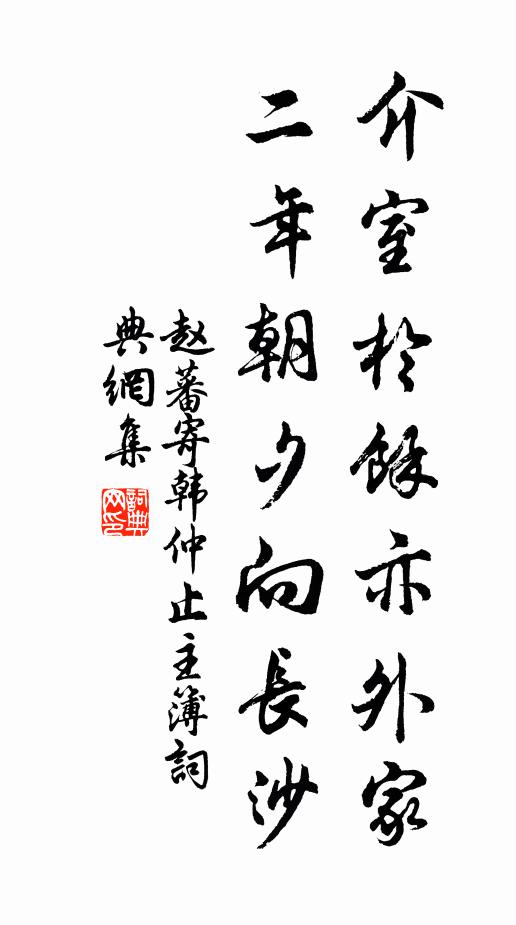 介室於餘亦外家
二年朝夕向長沙
赵蕃寄韩仲止主簿詞
典網集
詞典
网印